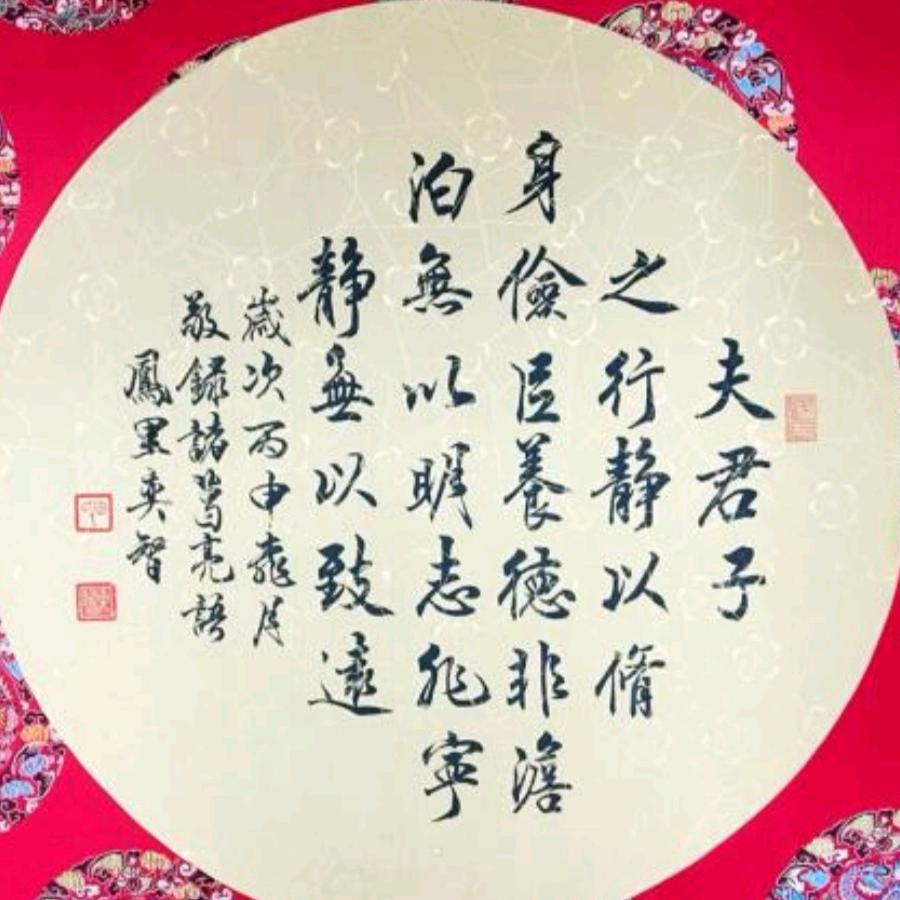 夫君子
之行静以脩
身儉㠯養德非澹
泊無以明志非寧
静無以致遠
歲次丙申月
敬錄諸葛亮語
鳳里奕智